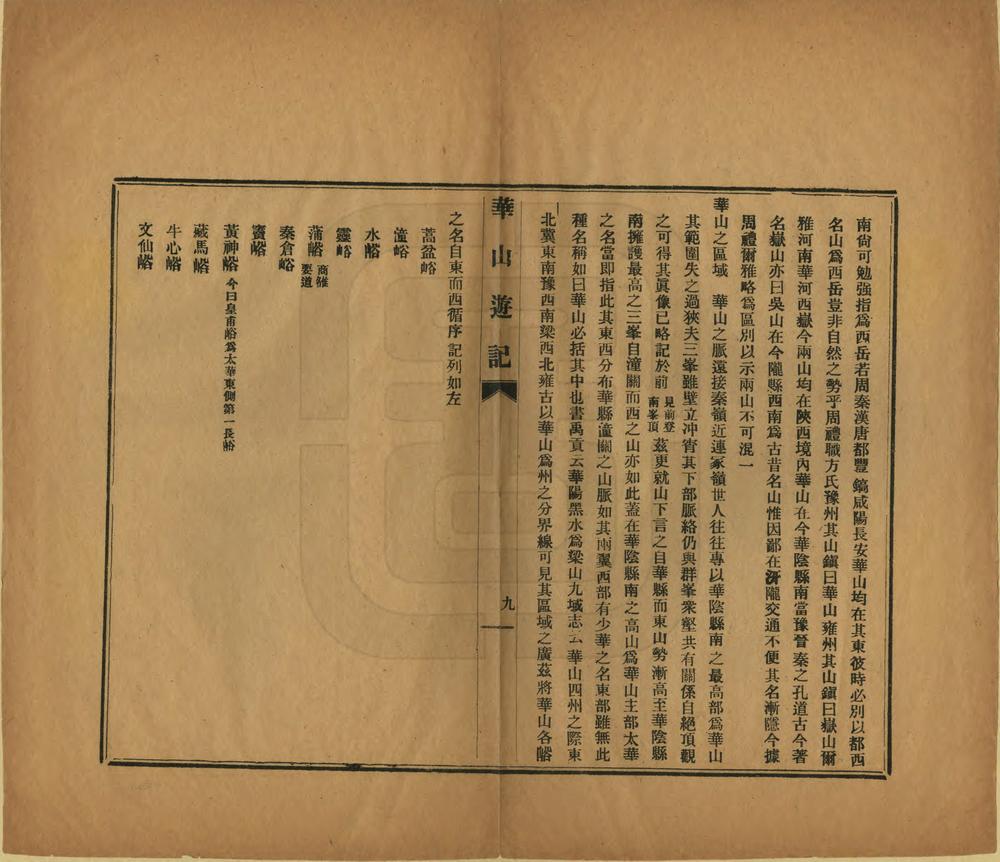 南尙可勉強指爲西岳若周秦漢唐都豐鎬咸陽長安華山均在其東彼時必別以都西
名山爲西岳豈非自然之勢乎周禮職方氏豫州其山鎭曰華山雍州其山鎭曰嶽山爾
雅河南華河西嶽今兩山均在陝西境內華山在今華陰縣南當豫晉秦之孔道古今著
名嶽山亦曰吳山在今隴縣西南爲古昔名山惟因鄙在汧隴交通不便其名漸隱今據
周禮爾雅略爲區別以示兩山不可混一
華山之區域　華山之脈遠接秦嶺近連冢嶺世人往往專以華陰縣南之最高部爲華山
其範圍失之過狹夫三峯雖壁立冲霄其下部脈絡仍與群峯衆壑共有關係自絕頂觀
之可得其眞像已略記於前見前登南峯頂茲更就山下言之自華縣而東山勢漸高至華陰縣
南擁護最高之三峯自潼關而西之山亦如此蓋在華陰縣南之高山爲華山主部太華
之名當即指此其東西分布華縣潼關之山脈如其兩翼西部有少華之名東部雖無此
種名稱如曰華山必括其中也書禹貢云華陽黑水爲梁山九域志云華山四州之際東
北冀東南豫西南梁西北雍古以華山爲州之分界線可見其區域之廣茲將華山各峪
華山遊記
九
之名自東而西循序記列如左
蒿盆峪
潼峪
水峪
靈峪
蒲峪商雒要道
秦倉峪
甕峪
黃神峪今曰皇甫峪爲太華東側第一長峪
藏馬峪
牛心峪
文仙峪